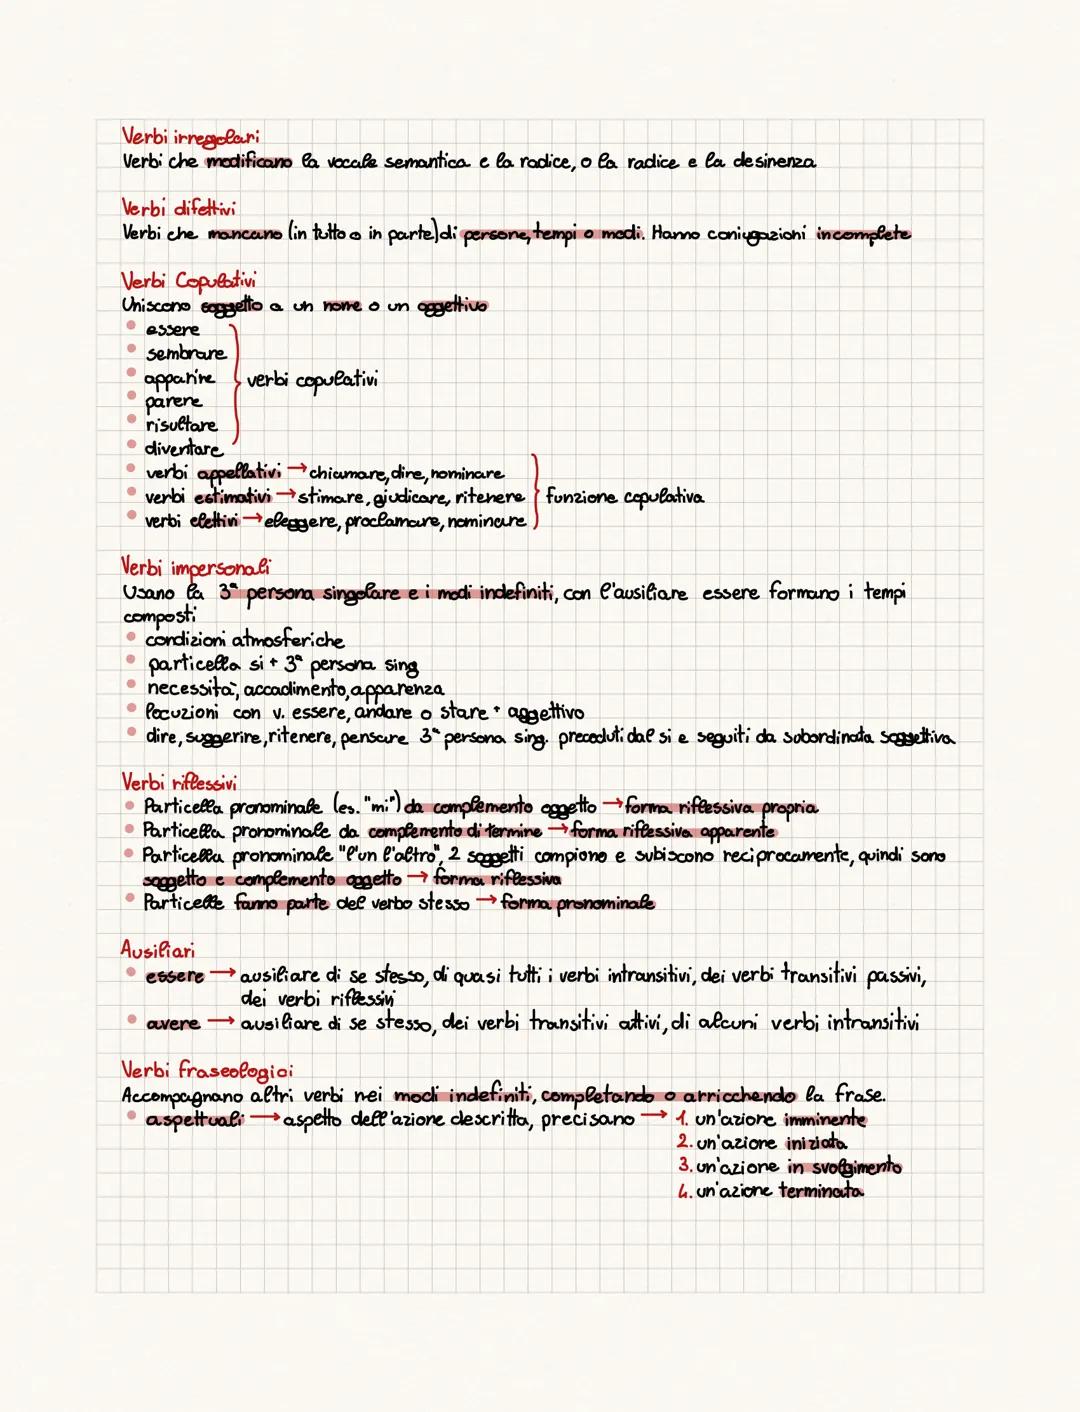 Verbi irregolari
Verbi che modificano la vocale semantica e la radice, o la radice e la desinenza
Verbi difettivi
Verbi che mancano (in tutto o in parte) di persone, tempi o modi. Hanno coniugazioni incomplete
Verbi Copulativi
Uniscono soggetto a un nome o un aggettivo
essere
sembrare
apparire
verbi copulativi
parere
risultare
diventare
verbi appellativi → chiamare, dire, nominare
verbi estimativi → stimare, giudicare, ritenere
funzione copulativa
verbi elettivi → eleggere, proclamare, nominare
Verbi impersonali
Usano la 3ª persona singolare e i modi indefiniti, con l'ausiliare essere formano i tempi
composti
condizioni atmosferiche
particella si + 3ª persona sing
necessità, accadimento, apparenza
locuzioni con v. essere, andare o stare + aggettivo
dire, suggerire, ritenere, pensare 3ª persona sing. preceduti dal si e seguiti da subordinata soggettiva
Verbi riflessivi
Particella pronominale (es. "mi") da complemento oggetto → forma riflessiva propria
Particella pronominale da complemento di termine → forma riflessiva apparente
Particella pronominale "l'un l'altro", 2 soggetti compiono e subiscono reciprocamente, quindi sono
soggetto e complemento oggetto → forma riflessiva
Particelle fanno parte del verbo stesso → forma pronominale
Ausiliari
essere → ausiliare di se stesso, di quasi tutti i verbi intransitivi, dei verbi transitivi passivi,
dei verbi riflessivi
avere → ausiliare di se stesso, dei verbi transitivi attivi, di alcuni verbi intransitivi
Verbi fraseologici
Accompagnano altri verbi nei modi indefiniti, completando o arricchendo la frase.
aspettuali → aspetto dell'azione descritta, precisano → 1. un'azione imminente
2. un'azione iniziata
3. un'azione in svolgimento
4. un'azione terminata